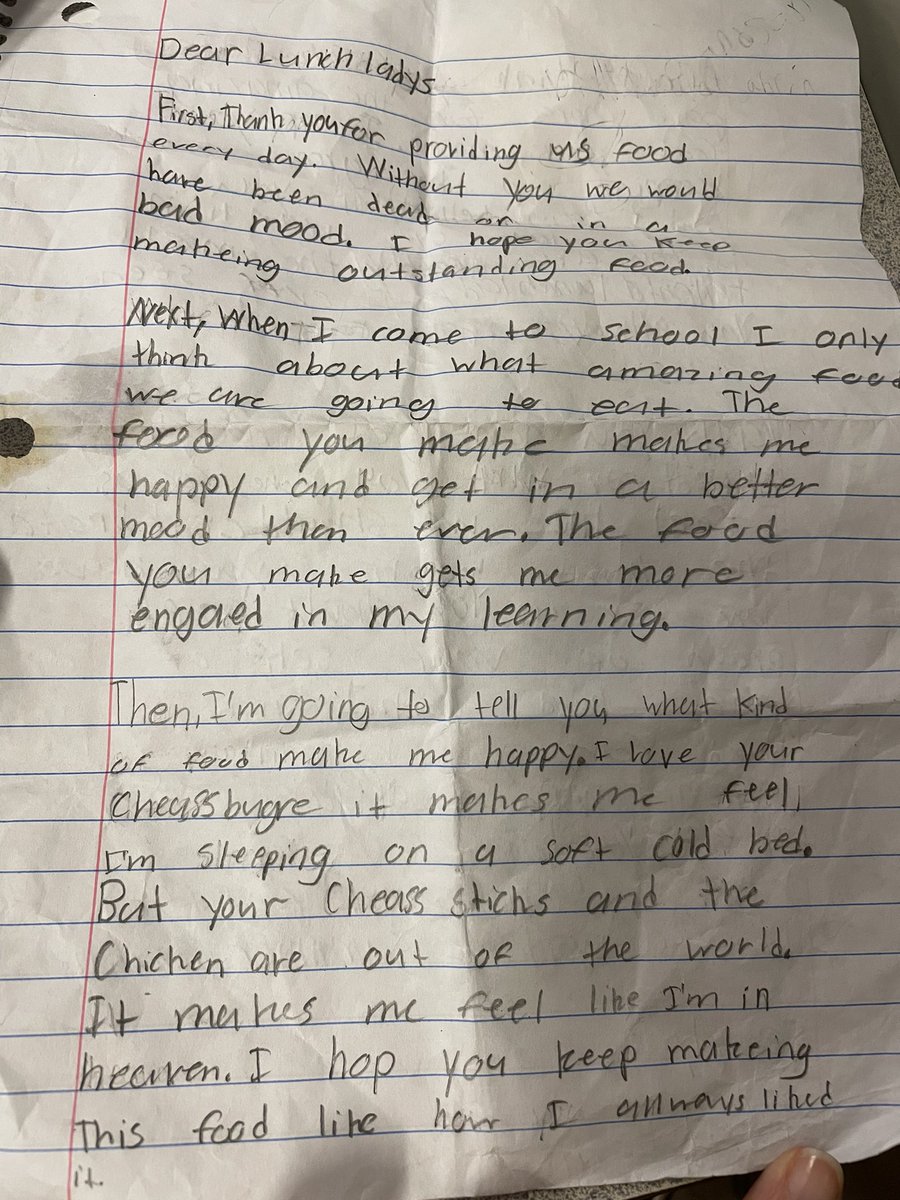 Dear Lunch ladys
First, Thank you for providing us food
every day. Without you we would
have been dead or in a
bad mood. I hope you keep
makeing outstanding food.
Next, When I come to school I only
think about what amazing food
we are going to eat. The
food you make makes me
happy and get in a better
mood then ever. The food
you make gets me more
engaed in my learning.
Then, I'm going to tell you what kind
of food make me happy. I love your
Cheassbugre it makes me feel
I'm sleeping on a soft cold bed.
But your Cheass sticks and the
Chicken are out of the world.
It makes me feel like I'm in
heaven. I hop you keep makeing
This food like how I always liked
it.